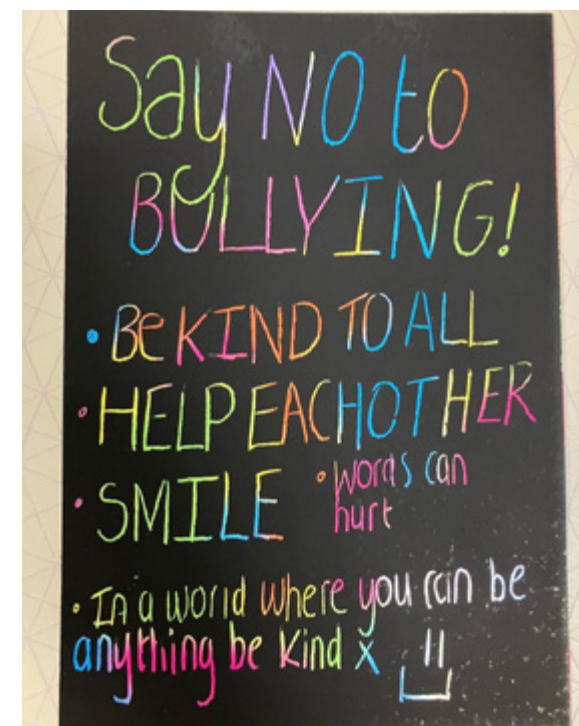 Say NO to
BULLYING!
• Be KIND TO ALL
• HELP EACHOTHER
• SMILE
• words can
hurt
• In a world where you can be
anything be kind x